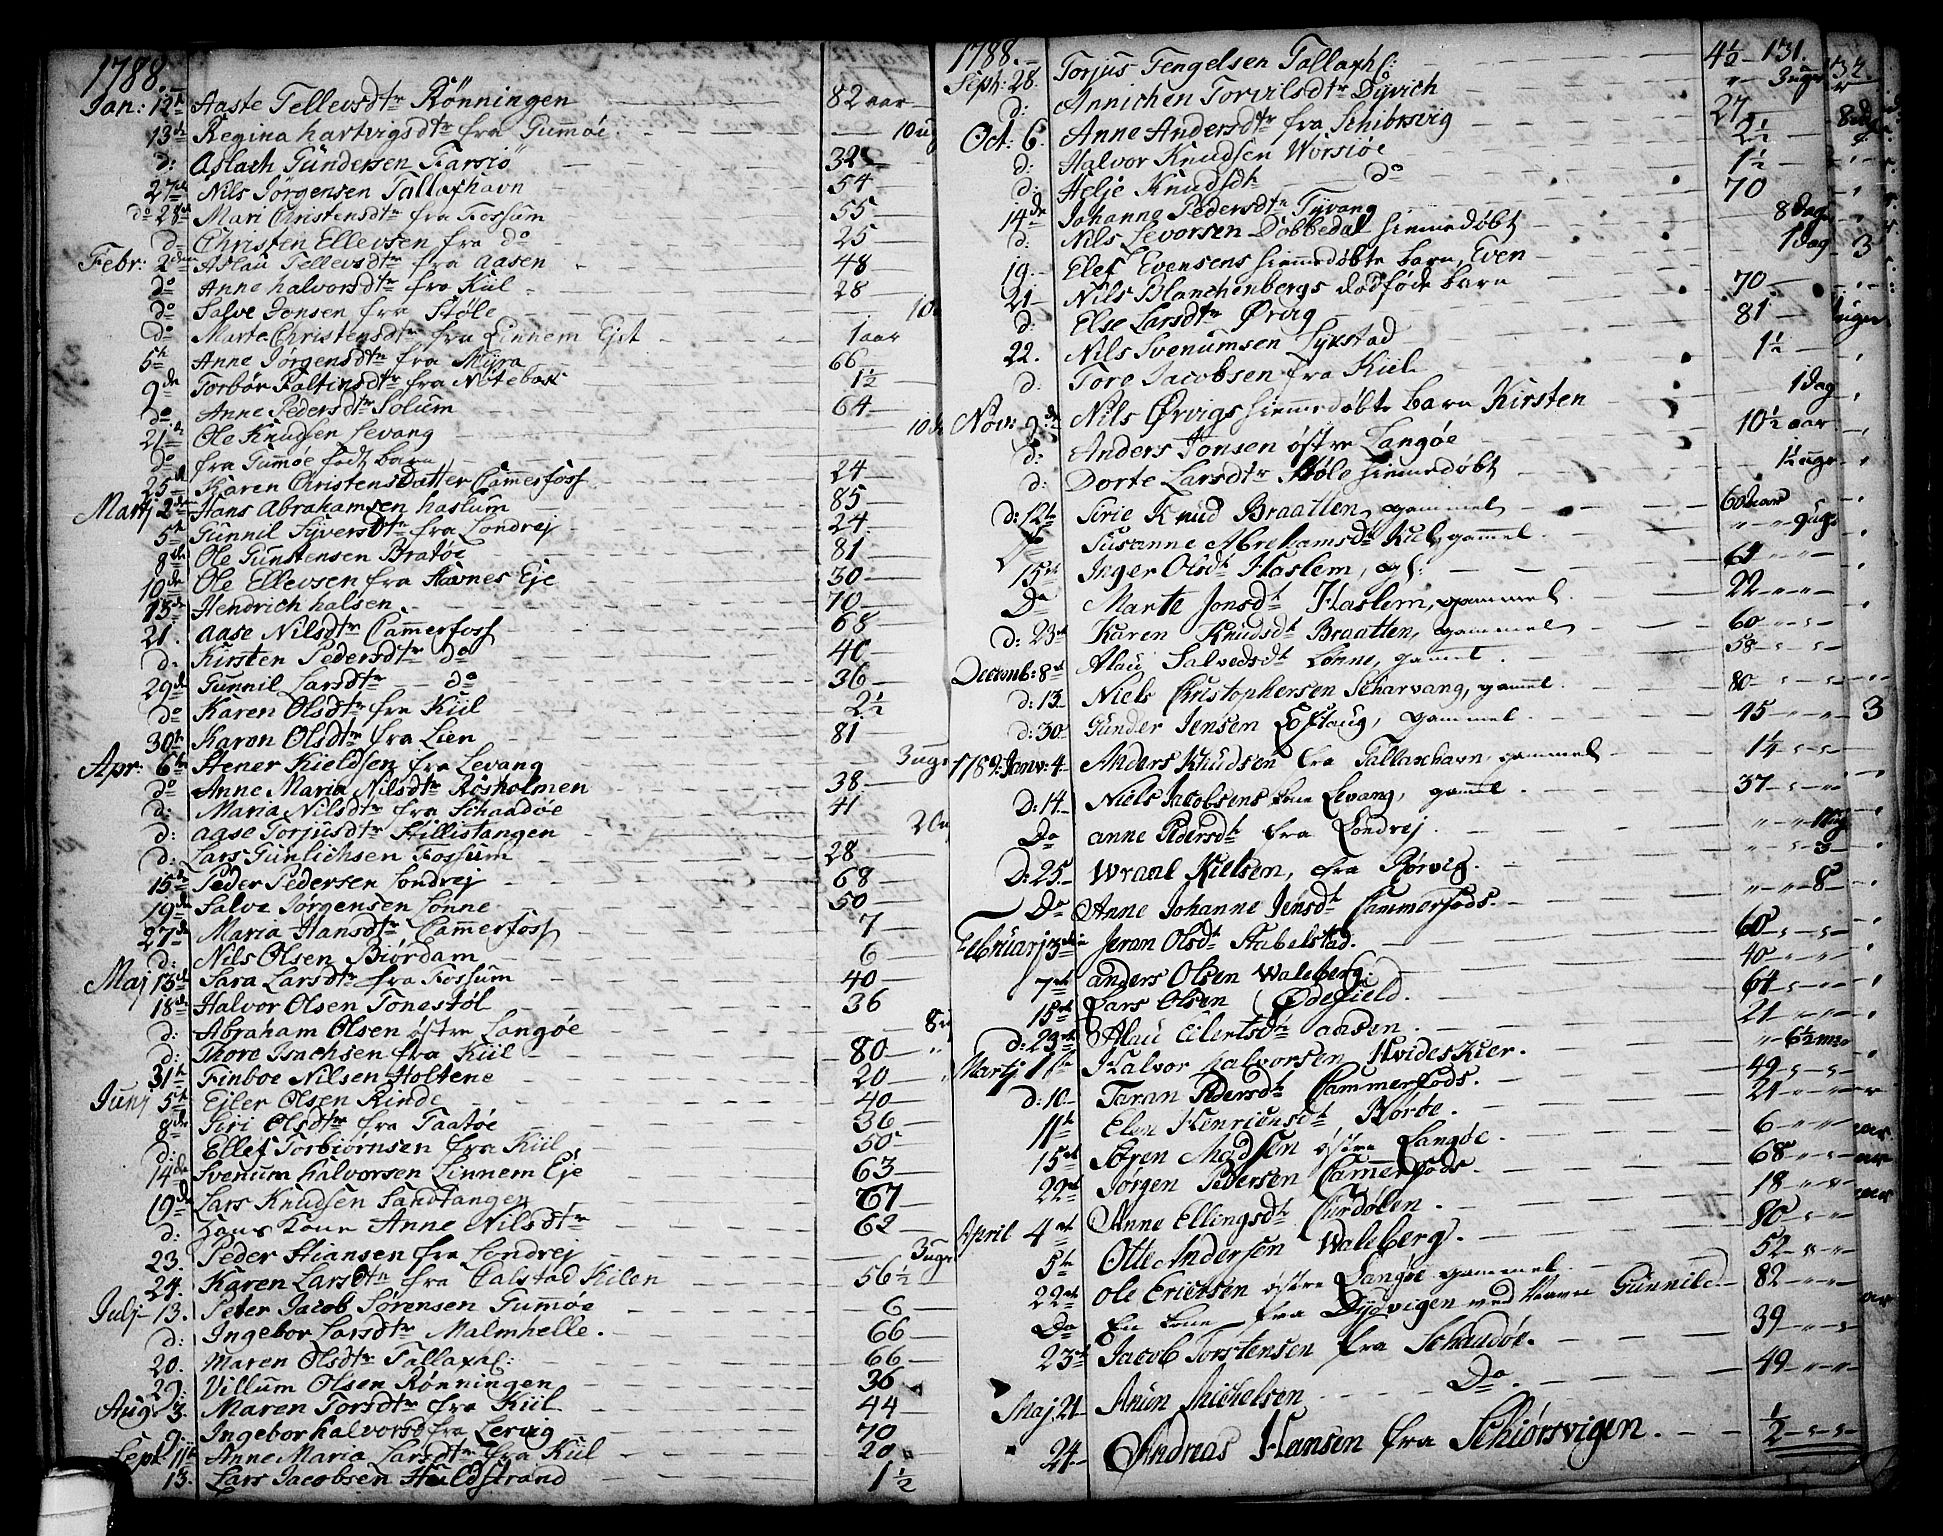 1788.
Jan: 12te Aaste Tellevsdtr Rönningen 82 aar
13de Regina hartvigsdtr fra Gumöe. 10 ug
d: Aslach Gundersen Farsiö 32
27de Nils Jörgensen Tallaxhavn 54
do 28de Mari Christensdtr fra Fossum 55
d: Christen Ellevsen fra do 25
Febr: 2den Aslau Tellevsdtr fra Aasen 48
do Anne halvorsdtr fra Kiil 28
do Salve Jonsen fra Støle
do Marte Christensdtr fra Linnem Ejet 1 aar
5te Anne Jörgensdtr fra Myra 66
9de Torbör Faltinsdtr fra Notebok 1½
do Anne Pedersdtr Solum 64
21de Ole Knudsen Levang
do fra Gumöe født barn
25de Karen Christensdatter Cammerfoss 24
Martj 2den Hans Abrahamsen haslum 85
5te Gunnil Syversdtr fra Londrej 24
8de Ole Gunstensen Bratøe 81
10de Ole Ellevsen fra Havnes Eje 30
13de Hendrich halsen 70
21. Aase Nilsdtr Cammerfoss 68
d: Kirsten Pedersdtr do 40
29de Gunnil Larsdtr do 36
do Karen Olsdtr fra Kiil 2½
30te Karen Olsdtr fra Lien 81
Apr: 6te Stener Kieldsen fra Levang 3 uger
do Anne Maria Nilsdtr Rosholmen 38
d: Maria Nilsdtr fra Schaadøe 41
d: Aase Torjusdtr Hillistangen
d: Lars Gunlichsen Fossum 28
15de Peder Pedersen Londrej 68
19de Salve Jörgensen Lönne 50
27de Maria Hansdtr Cammerfoss 7
d: Nils Olsen Biördam 6
Maj 13de Sara Larsdtr fra Fossum 40
18de Halvor Olsen Tonestöl 36
d: Abraham Olsen östre Langöe
d: Thore Isachsen fra Kiil 80
31te Finboe Nilsen Holtene 20
Junj 5te Ejler Olsen Rinde 40
8de Siri Olsdtr fra Taatøe 36
d: Ellef Torbiörnsen fra Kiil 50
14de Svenum halvorsen Linnem Eje 63
19de Lars Knudsen Sandtangen 67
d: hans kone Anne Nilsdtr 62
23. Peder Stiansen fra Londrej 3 uger
24. Karen Larsdtr fra Calstad Kilen 56½
Julj 13. Peter Jacob Sørensen Gumöe 6
d: Ingebor Larsdtr Malmhelle. 66
20. Maren Olsdtr Tallaxh: 66
29: Villum Olsen Rönningen 36
Aug: 3. Maren Torsdtr fra Kiil 44
9. Ingebor halvorsd fra Lervig 70
Sept 11te Anne Maria Larsdtr fra Kiil 20
13. Lars Jacobsen Huldstrand 1½
1788. 131.
Sept: 28. Torjus Tengelsen Tallaxh: 4½
d: Annichen Torvilsdtr Dyvich 3 uger
Oct: 6. Anne Andersdtr fra Schibsvig 27
d: Halvor Knudsen Worsiöe 2½
d: Helje Knudsdtr do 1½
14de Johanne Pedersdtr Tyvang 70
d: Nils Levorsen Dobbedal hiemedøbt 8 dage
19. Elef Evensens hiemedøbte barn, Even 1 dag
21 Nils Blanchenbergs dødføde barn
d: Else Larsdtr Ørvig 70
22. Nils Svenumsen Lykstad 81
d: Tore Jacobsen fra Kiil 1½
Novr: 2de Nils Ørvigs hiemedøbte barn Kirsten 1 dag
d: Anders Jonsen östre Langöe 10½ aar
d: Dorte Larsdtr Støle hiemedøbt 1½ uge
d: 12te Sirie Knud Braatten, gammel 60 aar
Do Susanne Abrahamsdtr Kiil, gammel. 9 ug
15de Inger Olsdtr Haslem, gl:
Do Marte Jonsdtr Haslem, gammel. 22
d: 23de Karen Knudsdtr Braatten, gammel 60
Decemb: 8de Alau Salvesdtr Lönne, gammel. 58
d: 13. Niels Christophersen Scharvang, gammel. 80
d: 30. Gunder Jensen Loftaug, gammel. 45
1789. Janv: 4 Anders Knudsen fra Tallaxhavn, gammel 1¼
D: 14. Niels Jacobsens kone Levang, gammel. 37
Do anne Pedersdtr fra Londrej.
D: 25. Wraal Kielsen, fra Rörvig. 3
Do Anne Johanne Jensdtr Cammerfods. 8
Februarj 3die Jeran Olsdtr Stabelstad. 60
7de anders Olsen Waleberg. 40
15de Lars Olsen Ödefield. 64
d: 23de Alau Eilertsdtr aasen. 21
Martj 1ste Halvor halvorsen Hvideskier. 6½ m
d: 10. Taran Pedersdtr Cammerfods. 49
11te Elen Henrichsdtr Rörøe. 21
15de Sören Madsen östre Langöe. 6
22de Jörgen Pedersen Camerfods. 68
April 4de Anne Ellingsdtr Curdölen. 18
5te Otte Andersen Waleberg. 80
22de Ole Ericksen östre Langöe gammel. 52
Do En kone fra Dydvigen ved Navn Gunnild 82
23de Jacob Torstensen fra Schaudöe. 39
Maj 21 Anun Michelsen Do 49
24 Andreas Hansen fra Schiörsvigen. ½